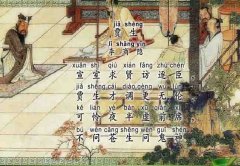 jiǎ shēng
贾生
lǐ shāng yǐn
李商隐
xuān shì qiú xián fǎng zhú chén
宣室求贤访逐臣
jiǎ shēng cái diào gèng wú lún
贾生才调更无伦
kě lián yè bàn xū qián xí
可怜夜半虚前席
bù wèn cāng shēng wèn guǐ shén
不问苍生问鬼神